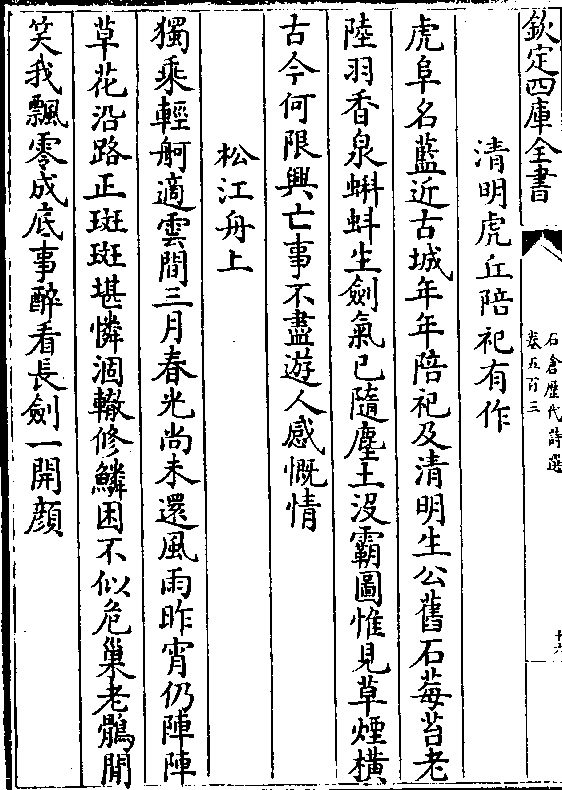 欽定四庫全書
石倉歷代詩選
卷五百三
十六
清明虎丘陪祀有作
虎阜名藍近古城年年陪祀及清明生公舊石莓苔老
陸羽香泉蝌蚪生劍氣已隨塵土沒霸圖惟見草煙橫
古今何限興亡事不盡遊人感慨情
松江舟上
獨乘輕舸適雲間三月春光尚未還風雨昨宵仍陣陣
草花沿路正斑斑堪憐涸轍修鱗困不似危巢老鶻閒
笑我飄零成底事醉看長劍一開顔